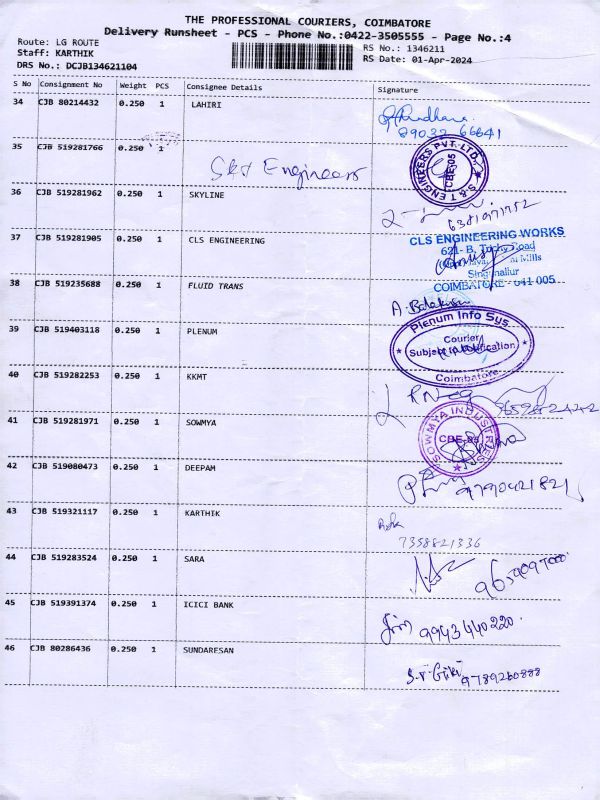 THE PROFESSIONAL COURIERS, COIMBATORE
Delivery Runsheet - PCS - Phone No.:0422-3505555 - Page No.:4
Route: LG ROUTE RS No.: 1346211
Staff: KARTHIK RS Date: 01-Apr-2024
DRS No.: DCJB134621104
S No Consignment No Weight PCS Consignee Details Signature
34 CJB 80214432 0.250 1 LAHIRI
89032 66641
35 CJB 519281766 0.250 1 S&T Engineers S&T ENGINEERS PVT. LTD. CBE-05
36 CJB 519281962 0.250 1 SKYLINE
37 CJB 519281905 0.250 1 CLS ENGINEERING CLS ENGINEERING WORKS
621-B, Trichy Road
Mills
Singanallur
COIMBATORE - 641 005
38 CJB 519235688 0.250 1 FLUID TRANS A.
39 CJB 519403118 0.250 1 PLENUM Plenum Info Sys
Courier
Subject to Verification
Coimbatore
40 CJB 519282253 0.250 1 KKMT
41 CJB 519281971 0.250 1 SOWMYA SOWMYA INDUSTRIES CBE-05
42 CJB 519080473 0.250 1 DEEPAM 9790421821
43 CJB 519321117 0.250 1 KARTHIK
7358821336
44 CJB 519283524 0.250 1 SARA
45 CJB 519391374 0.250 1 ICICI BANK 9943440220
46 CJB 80286436 0.250 1 SUNDARESAN 9789260888